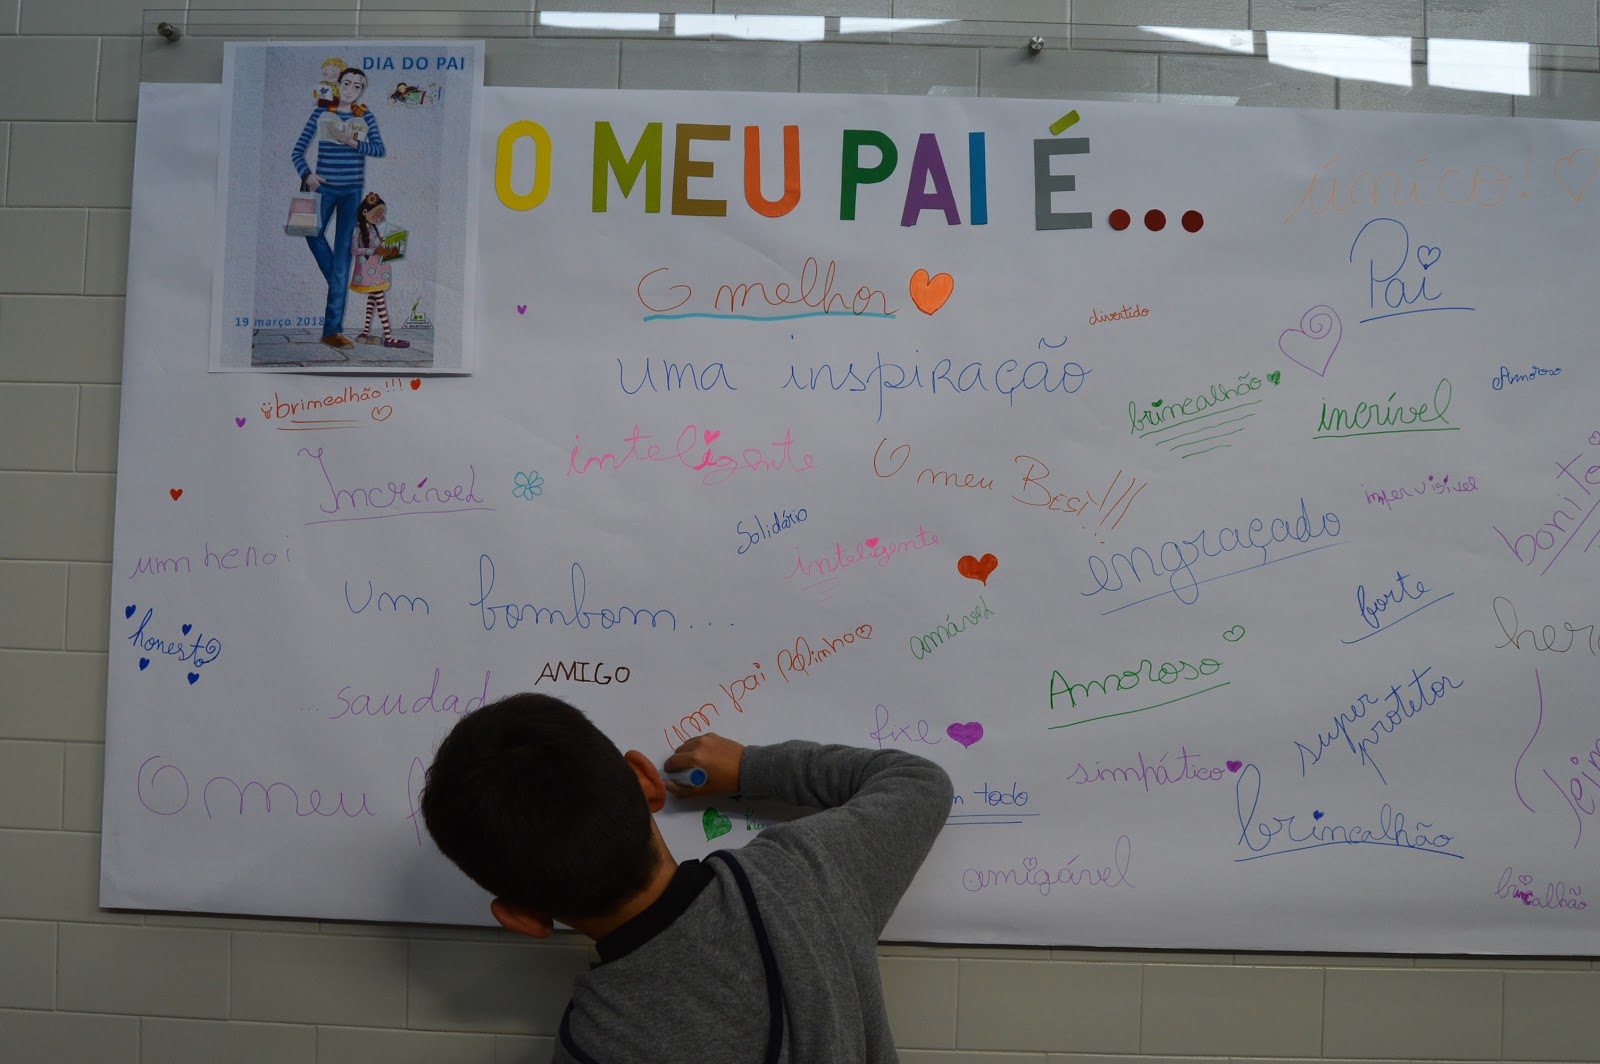 DIA DO PAI
19 março 2018
O MEU PAI É...
único!
Pai
O melhor
divertido
uma inspiração
Amoroso
brincalhão!!!
brincalhão
incrível
inteligente
Incrível
O meu Best!!!
Solidário
engraçado
inteligente
um heroi
um bombom...
forte
amável
honesto
um pai
AMIGO
Amoroso
super
protetor
...saudad
fixe
simpático
O meu
todo
brincalhão
amigável
brincalhão